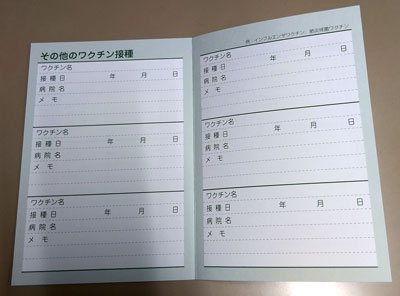 その他のワクチン接種
ワクチン名
接種日 年 月 日
病院名
メモ
ワクチン名
接種日 年 月 日
病院名
メモ
ワクチン名
接種日 年 月 日
病院名
メモ
例:インフルエンザワクチン、肺炎球菌ワクチン
ワクチン名
接種日 年 月 日
病院名
メモ
ワクチン名
接種日 年 月 日
病院名
メモ
ワクチン名
接種日 年 月 日
病院名
メモ